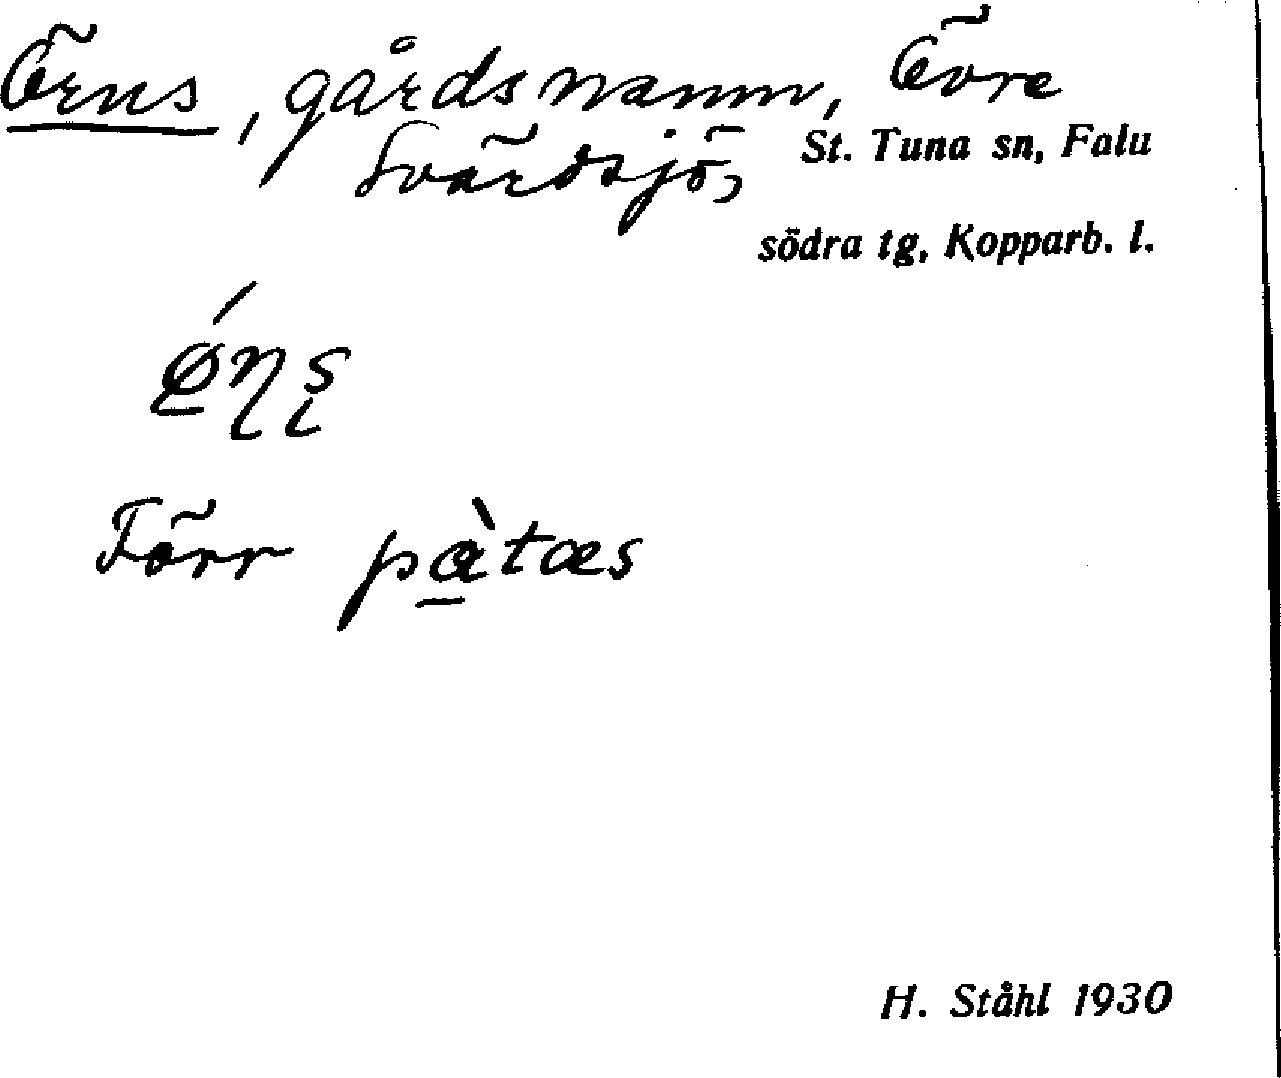 Örns, gårdsnamn, Övre
Svärdsjö,
St. Tuna sn, Falu
södra tg, Kopparb. l.
Förr pàtæs
H. Ståhl 1930